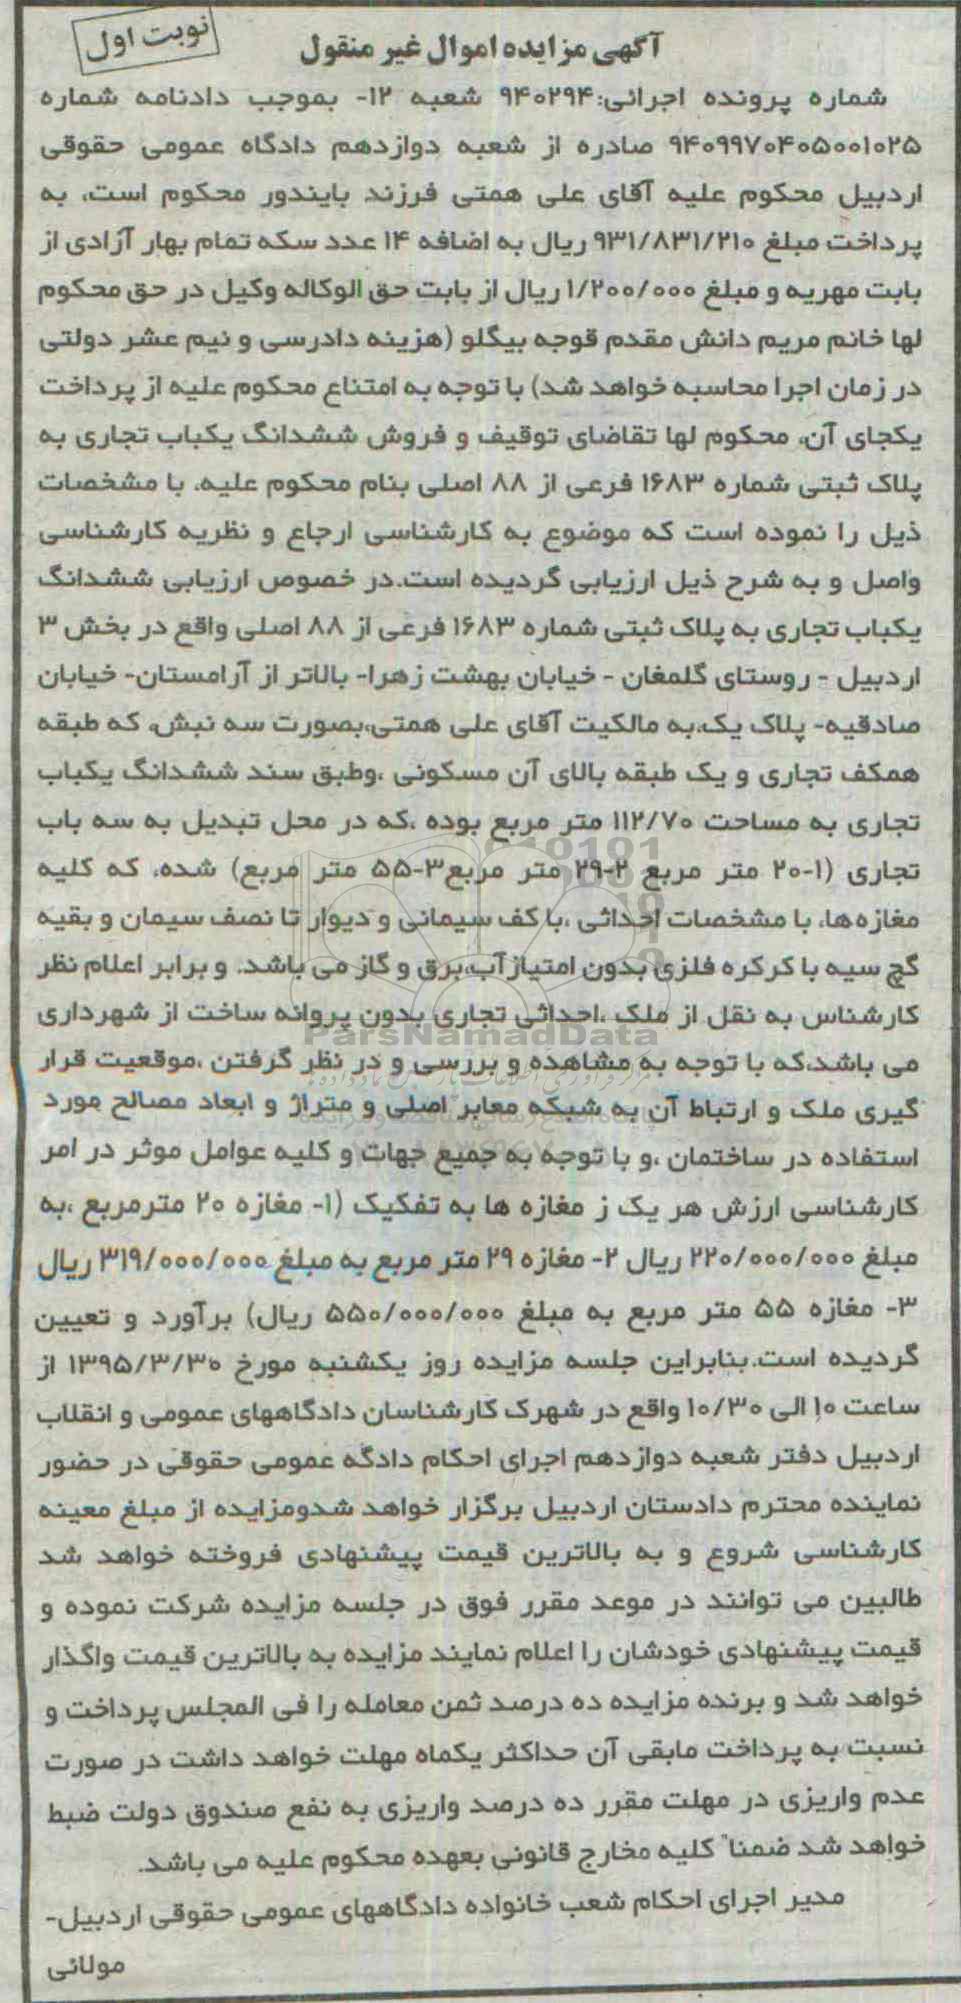 نوبت اول
آگهی مزایده اموال غیر منقول
شماره پرونده اجرائی:۹۴۰۲۹۴ شعبه ۱۲- بموجب دادنامه شماره
۹۴۰۹۹۷۰۴۰۵۰۰۱۰۲۵ صادره از شعبه دوازدهم دادگاه عمومی حقوقی
اردبیل محکوم علیه آقای علی همتی فرزند بایندور محکوم است، به
پرداخت مبلغ ۹۳۱/۸۳۱/۲۱۰ ریال به اضافه ۱۴ عدد سکه تمام بهار آزادی از
بابت مهریه و مبلغ ۱/۲۰۰/۰۰۰ ریال از بابت حق الوکاله وکیل در حق محکوم
لها خانم مریم دانش مقدم قوجه بیگلو (هزینه دادرسی و نیم عشر دولتی
در زمان اجرا محاسبه خواهد شد) با توجه به امتناع محکوم علیه از پرداخت
یکجای آن، محکوم لها تقاضای توقیف و فروش ششدانگ یکباب تجاری به
پلاک ثبتی شماره ۱۶۸۳ فرعی از ۸۸ اصلی بنام محکوم علیه، با مشخصات
ذیل را نموده است که موضوع به کارشناسی ارجاع و نظریه کارشناسی
واصل و به شرح ذیل ارزیابی گردیده است.در خصوص ارزیابی ششدانگ
یکباب تجاری به پلاک ثبتی شماره ۱۶۸۳ فرعی از ۸۸ اصلی واقع در بخش ۳
اردبیل - روستای گلمغان - خیابان بهشت زهرا- بالاتر از آرامستان- خیابان
صادقیه- پلاک یک،به مالکیت آقای علی همتی،بصورت سه نبش، که طبقه
همکف تجاری و یک طبقه بالای آن مسکونی ،وطبق سند ششدانگ یکباب
تجاری به مساحت ۱۱۲/۷۰ متر مربع بوده ،که در محل تبدیل به سه باب
تجاری (۱-۲۰ متر مربع ۲-۲۹ متر مربع۳-۵۵ متر مربع) شده، که کلیه
مغازه ها، با مشخصات احداثی ،با کف سیمانی و دیوار تا نصف سیمان و بقیه
گچ سیه با کرکره فلزی بدون امتیاز آب،برق و گاز می باشد. و برابر اعلام نظر
کارشناس به نقل از ملک ،احداثی تجاری بدون پروانه ساخت از شهرداری
ParsNamadData
می باشد،که با توجه به مشاهده و بررسی و در نظر گرفتن ،موقعیت قرار
گیری ملک و ارتباط آن به شبکه معابر اصلی و متراژ و ابعاد مصالح مورد
استفاده در ساختمان ،و با توجه به جمیع جهات و کلیه عوامل موثر در امر
کارشناسی ارزش هر یک ز مغازه ها به تفکیک (۱- مغازه ۲۰ مترمربع ،به
مبلغ ۲۲۰/۰۰۰/۰۰۰ ریال ۲- مغازه ۲۹ متر مربع به مبلغ ۳۱۹/۰۰۰/۰۰۰ ریال
۳- مغازه ۵۵ متر مربع به مبلغ ۵۵۰/۰۰۰/۰۰۰ ریال) برآورد و تعیین
گردیده است.بنابراین جلسه مزایده روز یکشنبه مورخ ۱۳۹۵/۳/۳۰ از
ساعت ۱۰ الی ۱۰/۳۰ واقع در شهرک کارشناسان دادگاههای عمومی و انقلاب
اردبیل دفتر شعبه دوازدهم اجرای احکام دادگه عمومی حقوقی در حضور
نماینده محترم دادستان اردبیل برگزار خواهد شدومزایده از مبلغ معینه
کارشناسی شروع و به بالاترین قیمت پیشنهادی فروخته خواهد شد
طالبین می توانند در موعد مقرر فوق در جلسه مزایده شرکت نموده و
قیمت پیشنهادی خودشان را اعلام نمایند مزایده به بالاترین قیمت واگذار
خواهد شد و برنده مزایده ده درصد ثمن معامله را فی المجلس پرداخت و
نسبت به پرداخت مابقی آن حداکثر یکماه مهلت خواهد داشت در صورت
عدم واریزی در مهلت مقرر ده درصد واریزی به نفع صندوق دولت ضبط
خواهد شد ضمنا" کلیه مخارج قانونی بعهده محکوم علیه می باشد.
مدیر اجرای احکام شعب خانواده دادگاههای عمومی حقوقی اردبیل-
مولائی